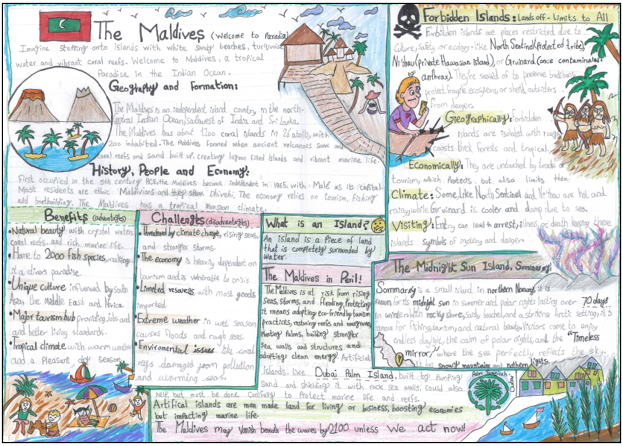 The Maldives (Welcome to Paradise)
Imagine stepping onto islands with white sandy beaches, turquoise
water and vibrant coral reefs. Welcome to Maldives, a tropical
Paradise in the Indian Ocean.
Geography and Formation:
The Maldives is an independent island country in the north-
central Indian Ocean, Southwest of India and Sri Lanka.
The Maldives has about 1200 coral islands in 26 atolls, with
200 inhabited. The Maldives formed when ancient volcanoes sunk and
coral reefs and sand built up, creating lagoon lined islands and vibrant marine life.
History, People and Economy:
First occupied in the 5th century BCE, the Maldives became independent in 1965 with Male as its capital.
Most residents are ethnic Maldivians and Dhivehi. The economy relies on tourism, fishing
and boatbuilding. The Maldives has a tropical monsoon climate.
Benefits (advantages)
Natural beauty with crystal waters
coral reefs and rich marine life.
Home to 2000 fish species, making
it a divers paradise.
Unique culture influenced by South
Asia, the middle East and Africa.
Major tourism hub providing jobs and
and better living standards.
Tropical climate with warm weather
and a pleasant dry season.
Challenges (disadvantages)
Threatened by climate change, rising seas,
and stronger storms.
The economy is heavily dependent on
tourism and is vulnerable to crisis
Limited resources with most goods
imported.
Extreme weather in wet season
causes floods and rough seas.
Environmental issues like coral
reefs damaged from pollution
and warming seas.
What is an Island?
An Island is a Piece of land
that is completely surrounded by
Water.
The Maldives in Peril!
The Maldives is at risk from rising
seas, storms, and flooding. Protecting
it means adopting eco-friendly tourism
practices, restoring reefs and mangroves,
planting palms, building stronger
sea walls and structures and
adopting clean energy. Artificial
Islands like Dubai Palm Island, built by pumping
sand and shielding it with rock sea walls could also
help but must be done carefully to Protect marine life and reefs.
Artifical Islands are man made land for living or business, boosting economies
but impacting marine life.
The Maldives may vanish beneath the waves by 2100 unless we act now!
Forbidden Islands: Lands off-Limits to All
Forbidden islands are places restricted due to
culture, safety or ecology like North Sentinel (Protected tribe),
Niihau (Private Hawaiian Island) or Gruinard (once contaminated
anthrax). They're sealed off to preserve traditions,
protect fragile ecosystems or shield outsiders
from danger.
Geographically: forbidden
islands are isolated with rugged
coasts, thick forests and tropical
Economically: They are untouched by trade or
tourism, which protects but also limits them
Climate: Some like North Sentinel and Niihau are hot and
rainy while Gruinard is cooler and damp due to sea.
Visiting: Entry can lead to arrest, illness or death making these
islands symbols of mystery and danger.
The Midnight Sun Island, Sommarøy:
Sommarøy is a small island in northern Norway, it is
known for its midnight sun in summer and polar nights lasting over 70 days
in winter. with rocky shores, sandy beaches and a striking arctic setting, it is
known for fishing, tourism and natural beauty. Visitors come to enjoy
endless daylight, the calm of polar nights, and the "Timeless
mirror," where the sea perfectly reflects the sky,
snowy mountains and northern lights.
Palm Jumeirah
Dubai